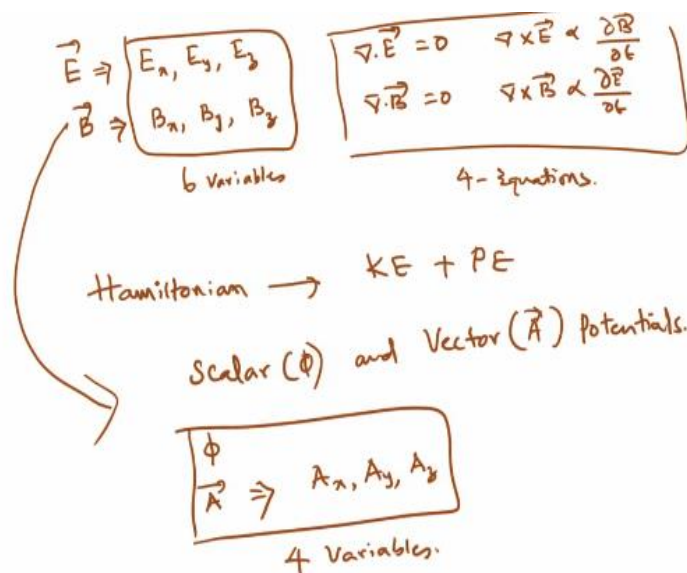 E⃗ ⇒ E_x, E_y, E_z
B⃗ ⇒ B_x, B_y, B_z
6 Variables
∇·E⃗ = 0 ∇×E⃗ ∝ ∂B⃗/∂t
∇·B⃗ = 0 ∇×B⃗ ∝ ∂E⃗/∂t
4-Equations.
Hamiltonian → KE + PE
Scalar (ϕ) and Vector (A⃗) Potentials.
ϕ
A⃗ ⇒ A_x, A_y, A_z
4 Variables.